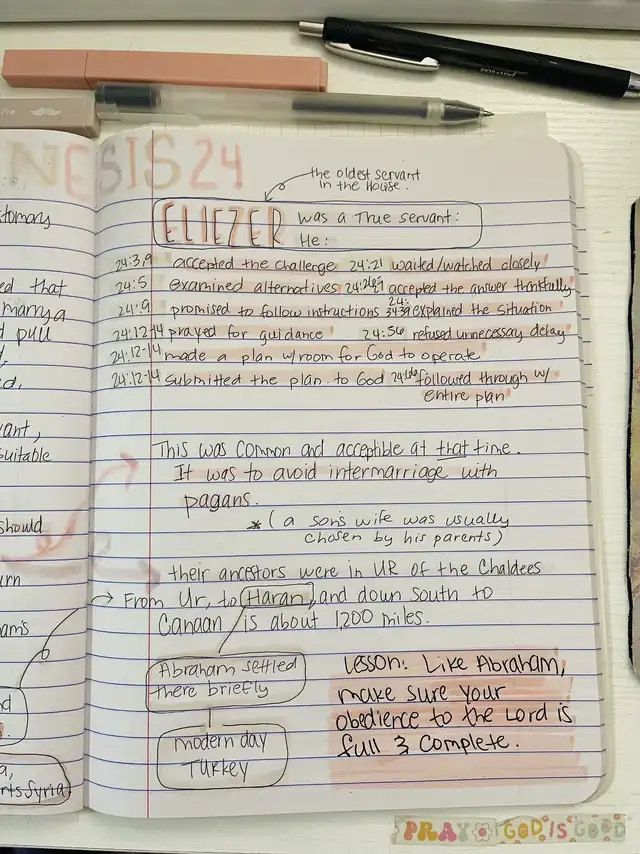 NESIS 24
the oldest servant
in the House.
ELIEZER was a True servant:
He:
24:3,9 accepted the challenge 24:21 waited/watched closely
24:5 examined alternatives accepted the answer thankfully
24:9 promised to follow instructions 24:34-39 explained the situation
24:12-14 prayed for guidance 24:56 refused unnecessary delay
24:12-14 made a plan w/room for God to operate
24:12-14 submitted the plan to God 24:66 followed through w/
entire plan
This was common and acceptible at that time.
It was to avoid intermarriage with
pagans.
* (a son's wife was usually
chosen by his parents)
their ancestors were in UR of the Chaldees
→ From Ur, to Haran, and down south to
Canaan is about 1,200 miles.
Abraham settled
there briefly
modern day
TURKEY
Lesson: Like Abraham,
make sure your
obedience to the Lord is
full & complete.
tomary
ed that
marry a
ant,
uitable
should
urn
am's
nd
a,
rts Syria
PRAY GOD IS GOOD